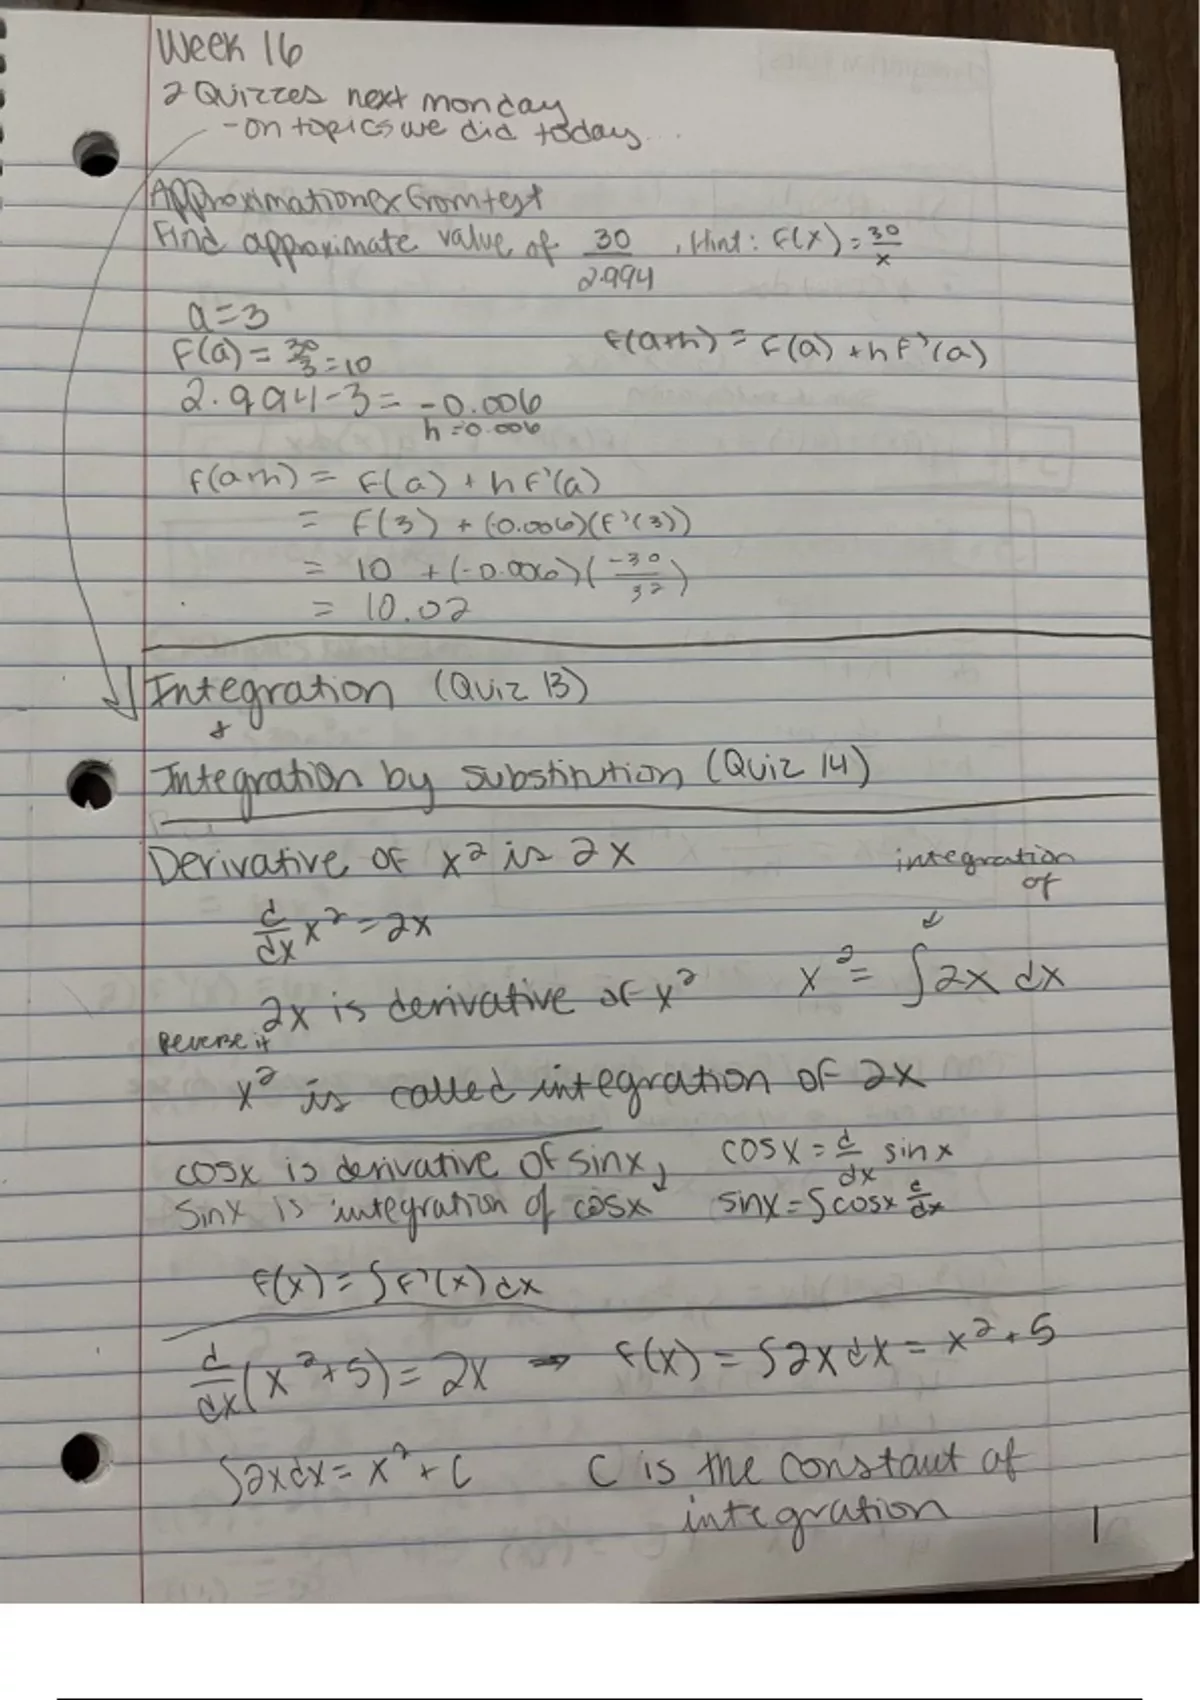 Week 16
2 Quizzes next monday
- on topics we did today...
Approximation ex from test
Find approximate value of 30/2.994, Hint: f(x) = 30/x
a=3
f(a) = 30/3 = 10
f(a+h) = f(a) + h f'(a)
2.994-3 = -0.006
h = 0.006
f(a+h) = f(a) + h f'(a)
= f(3) + (-0.006)(f'(3))
= 10 + (-0.006)(-30/3²)
= 10.02
Integration (Quiz 13)
&
Integration by substitution (Quiz 14)
Derivative of x² is 2x
integration of
d/dx x² = 2x
x² = ∫2x dx
2x is derivative of x²
Reverse it
x² is called integration of 2x
cosx is derivative of sinx,
cosx = d/dx sinx
sinx is integration of cosx
sinx = ∫cosx d/dx
f(x) = ∫f'(x) dx
d/dx(x²+5) = 2x → f(x) = ∫2x dx = x²+5
∫2xdx = x² + C
C is the constant of
integration
1